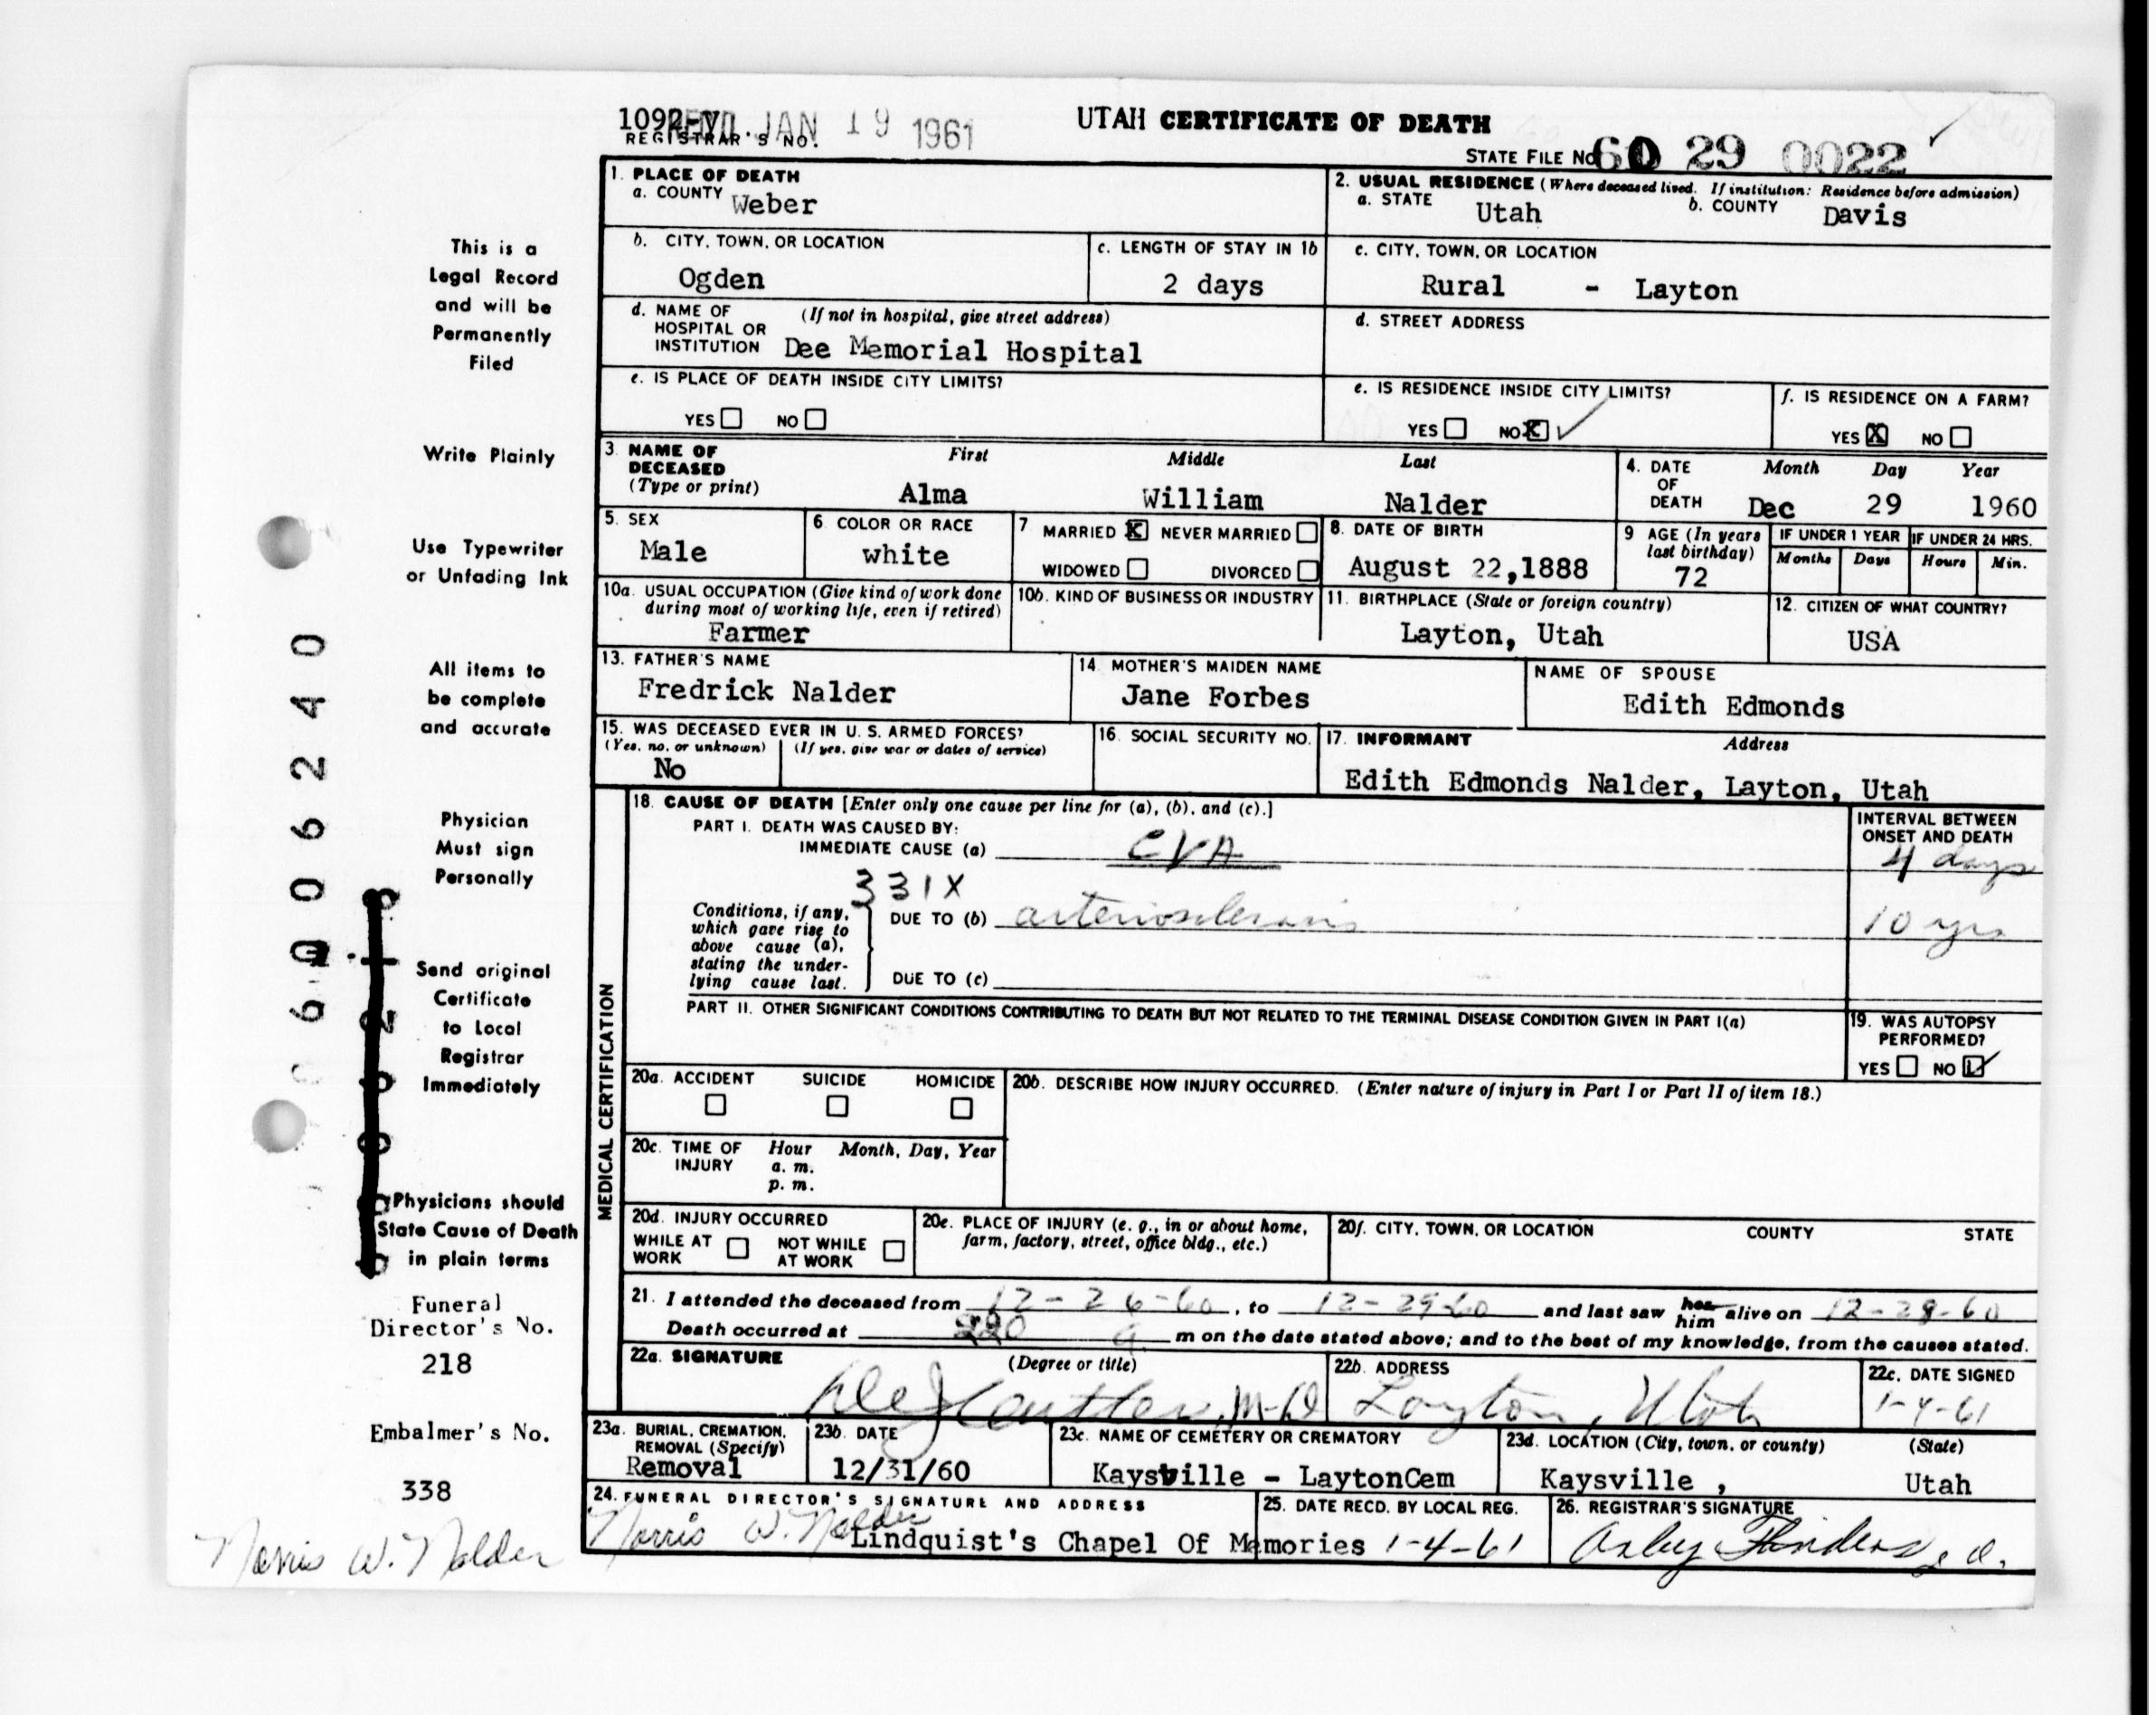 1092-V
REC'D. JAN 19 1961
UTAH CERTIFICATE OF DEATH
REGISTRAR'S NO.
STATE FILE NO. 60 29 0022
1. PLACE OF DEATH
a. COUNTY Weber
2. USUAL RESIDENCE (Where deceased lived. If institution: Residence before admission)
a. STATE Utah b. COUNTY Davis
b. CITY, TOWN, OR LOCATION
Ogden
c. LENGTH OF STAY IN 1b
2 days
c. CITY, TOWN, OR LOCATION
Rural - Layton
d. NAME OF HOSPITAL OR INSTITUTION (If not in hospital, give street address)
Dee Memorial Hospital
d. STREET ADDRESS
e. IS PLACE OF DEATH INSIDE CITY LIMITS?
YES NO
e. IS RESIDENCE INSIDE CITY LIMITS?
YES NO X
f. IS RESIDENCE ON A FARM?
YES X NO
3. NAME OF DECEASED (Type or print)
First Middle Last
Alma William Nalder
4. DATE OF DEATH
Month Day Year
Dec 29 1960
5. SEX
Male
6. COLOR OR RACE
white
7. MARRIED X NEVER MARRIED
WIDOWED DIVORCED
8. DATE OF BIRTH
August 22,1888
9. AGE (In years last birthday)
72
IF UNDER 1 YEAR
Months Days
IF UNDER 24 HRS.
Hours Min.
10a. USUAL OCCUPATION (Give kind of work done during most of working life, even if retired)
Farmer
10b. KIND OF BUSINESS OR INDUSTRY
11. BIRTHPLACE (State or foreign country)
Layton, Utah
12. CITIZEN OF WHAT COUNTRY?
USA
13. FATHER'S NAME
Fredrick Nalder
14. MOTHER'S MAIDEN NAME
Jane Forbes
NAME OF SPOUSE
Edith Edmonds
15. WAS DECEASED EVER IN U. S. ARMED FORCES?
(Yes, no, or unknown) (If yes, give war or dates of service)
No
16. SOCIAL SECURITY NO.
17. INFORMANT Address
Edith Edmonds Nalder, Layton, Utah
MEDICAL CERTIFICATION
18. CAUSE OF DEATH [Enter only one cause per line for (a), (b), and (c).]
PART I. DEATH WAS CAUSED BY:
IMMEDIATE CAUSE (a) CVA
INTERVAL BETWEEN ONSET AND DEATH
4 days
331X
Conditions, if any, which gave rise to above cause (a), stating the underlying cause last.
DUE TO (b) arteriosclerosis
10 yrs
DUE TO (c)
PART II. OTHER SIGNIFICANT CONDITIONS CONTRIBUTING TO DEATH BUT NOT RELATED TO THE TERMINAL DISEASE CONDITION GIVEN IN PART I(a)
19. WAS AUTOPSY PERFORMED?
YES NO
20a. ACCIDENT SUICIDE HOMICIDE
20b. DESCRIBE HOW INJURY OCCURRED. (Enter nature of injury in Part I or Part II of item 18.)
20c. TIME OF INJURY Hour Month, Day, Year
a. m.
p. m.
20d. INJURY OCCURRED
WHILE AT WORK NOT WHILE AT WORK
20e. PLACE OF INJURY (e. g., in or about home, farm, factory, street, office bldg., etc.)
20f. CITY, TOWN, OR LOCATION COUNTY STATE
21. I attended the deceased from 12-26-60, to 12-29-60 and last saw her him alive on 12-28-60
Death occurred at a m on the date stated above; and to the best of my knowledge, from the causes stated.
22a. SIGNATURE (Degree or title)
M.D
22b. ADDRESS
Layton, Utah
22c. DATE SIGNED
1-4-61
23a. BURIAL, CREMATION, REMOVAL (Specify)
Removal
23b. DATE
12/31/60
23c. NAME OF CEMETERY OR CREMATORY
Kaysville - LaytonCem
23d. LOCATION (City, town, or county) (State)
Kaysville , Utah
24. FUNERAL DIRECTOR'S SIGNATURE AND ADDRESS
Norris W. Nalder
Lindquist's Chapel Of Memories
25. DATE RECD. BY LOCAL REG.
1-4-61
26. REGISTRAR'S SIGNATURE
This is a
Legal Record
and will be
Permanently
Filed
Write Plainly
Use Typewriter
or Unfading Ink
All items to
be complete
and accurate
Physician
Must sign
Personally
Send original
Certificate
to Local
Registrar
Immediately
Physicians should
State Cause of Death
in plain terms
Funeral
Director's No.
218
Embalmer's No.
338
Norris W. Nalder